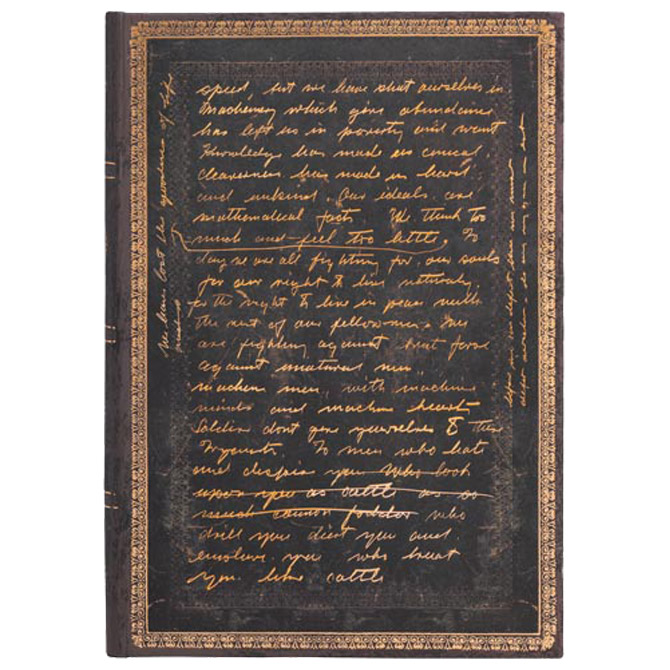 We have lost the
of life
speed, but we have shut ourselves in
Machenery which gives abundance
has left us in poverty and want
Knowledge has made us
has made us hard
and unkind. Our ideals are
mathematical facts. We think too
much and feel too little. To
day we are all fighting for our souls
for our right to live naturaly,
for the right to live in peace with
the rest of our fellowmen. Men
are fighting against force
against unatural men
machen men with machine
minds and machine hearts
Soldiers dont give yourselves to
To men who hate
and despise you who look
upon you as cattle as so
much cannon fodder who
drill you diet you and
enslave you who treat
you like cattle